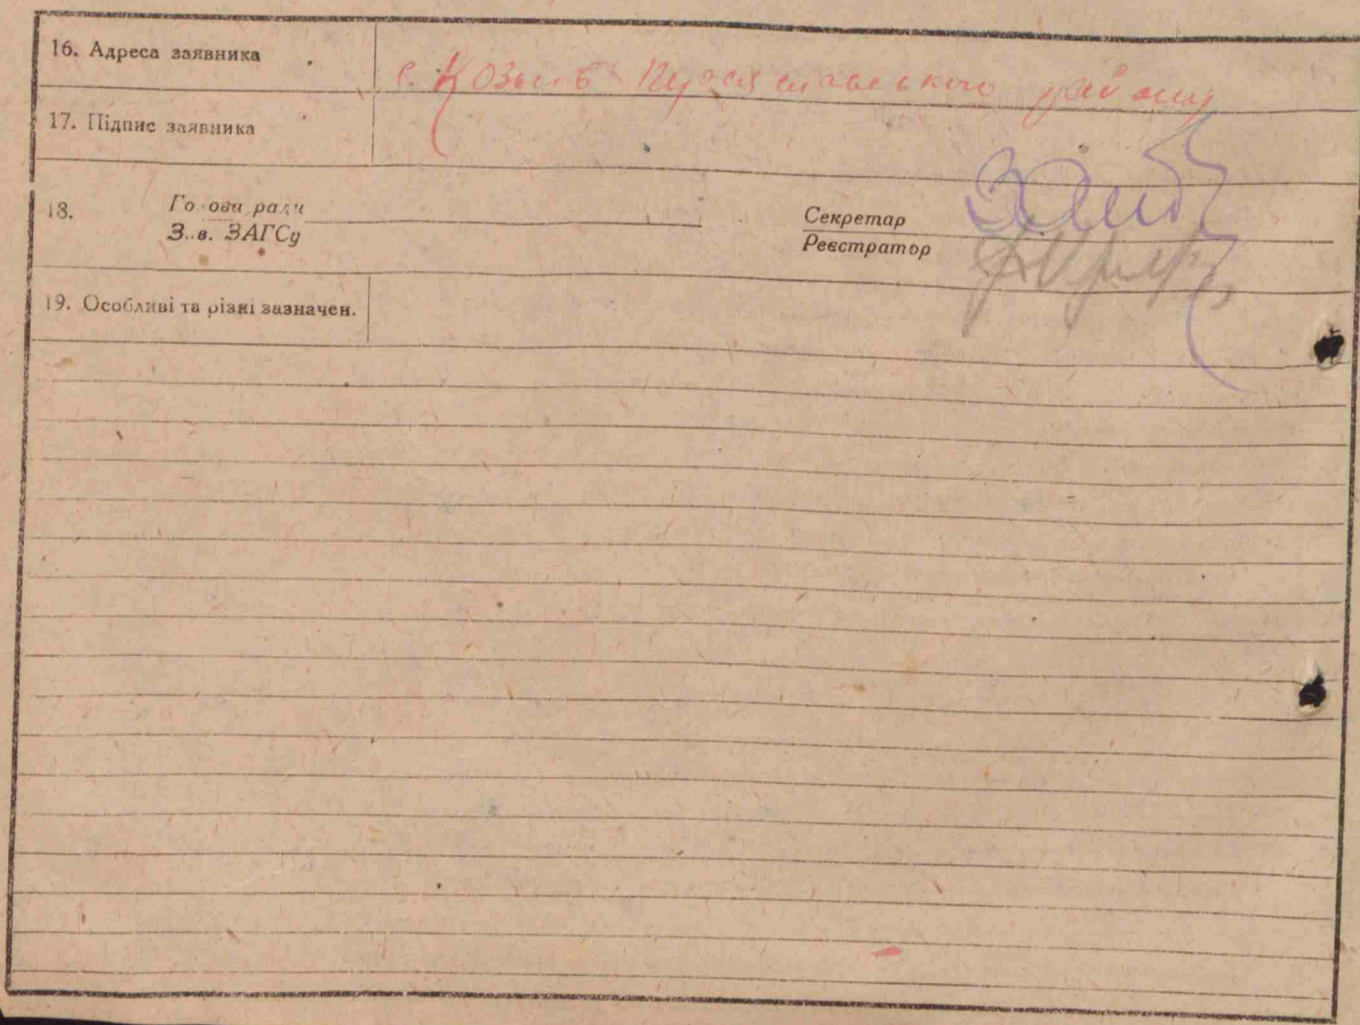 16. Адреса заявника
с. району
17. Підпис заявника
18. Голова ради
З..в. ЗАГСу
Секретар
Реєстратор
19. Особливі та різні зазначен.